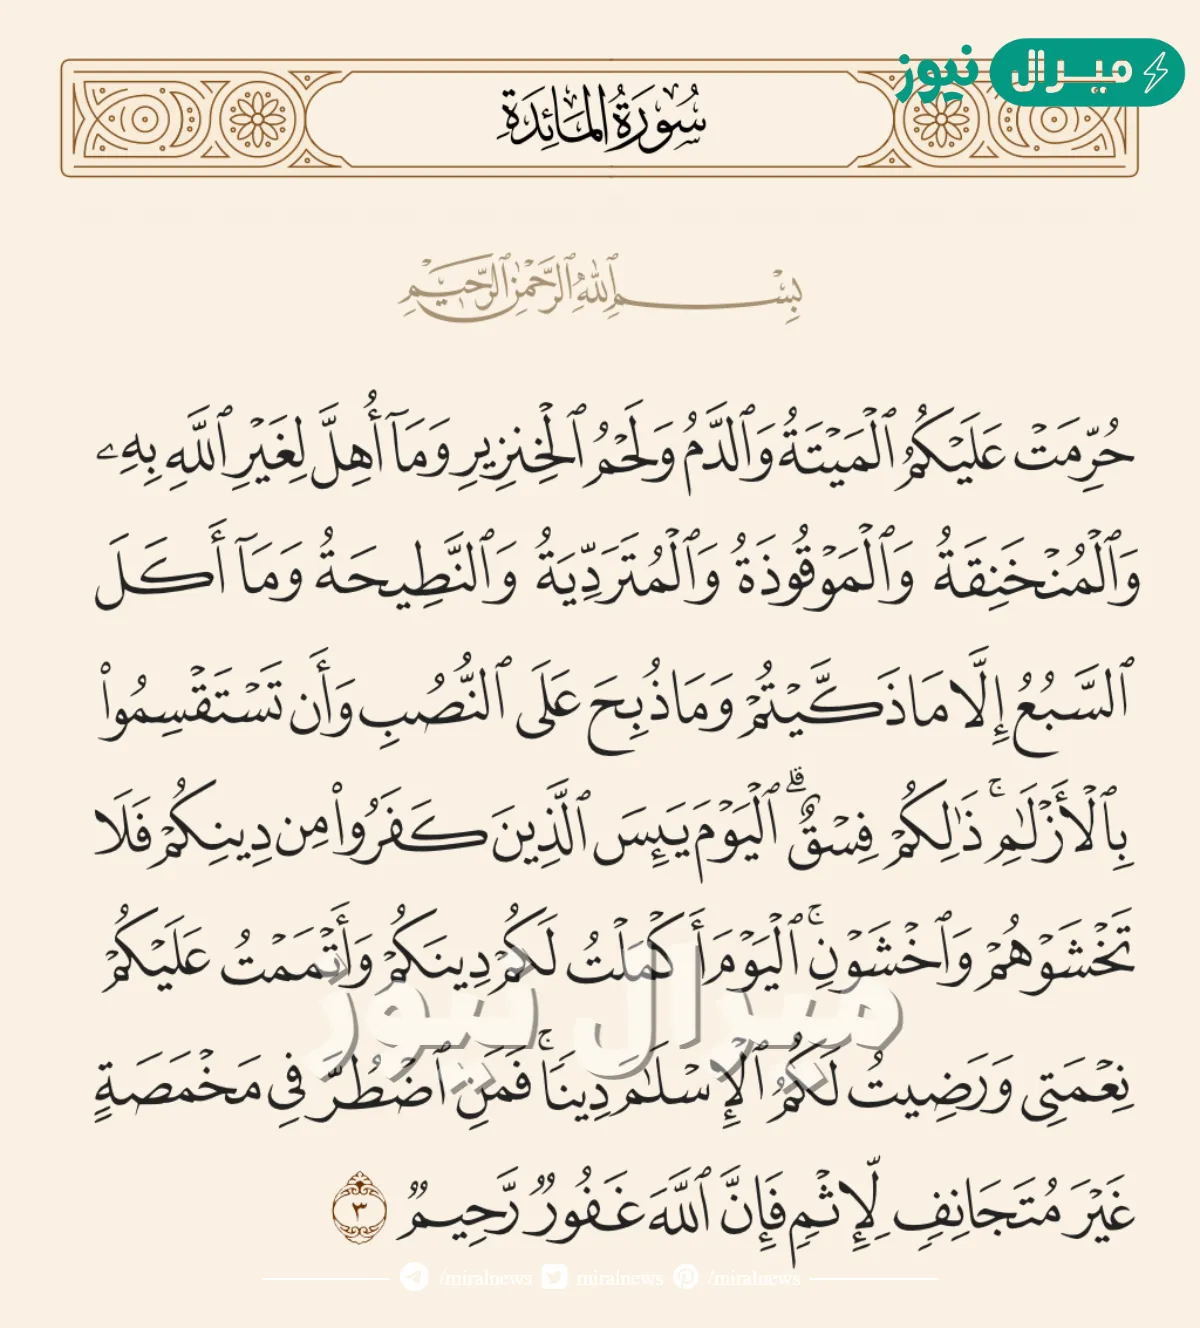 ميرال نيوز
سُورَةُ المَائِدَةِ
بِسْمِ ٱللَّهِ ٱلرَّحْمَٰنِ ٱلرَّحِيمِ
حُرِّمَتْ عَلَيْكُمُ ٱلْمَيْتَةُ وَٱلدَّمُ وَلَحْمُ ٱلْخِنزِيرِ وَمَآ أُهِلَّ لِغَيْرِ ٱللَّهِ بِهِۦ
وَٱلْمُنْخَنِقَةُ وَٱلْمَوْقُوذَةُ وَٱلْمُتَرَدِّيَةُ وَٱلنَّطِيحَةُ وَمَآ أَكَلَ
ٱلسَّبُعُ إِلَّا مَا ذَكَّيْتُمْ وَمَا ذُبِحَ عَلَى ٱلنُّصُبِ وَأَن تَسْتَقْسِمُوا۟
بِٱلْأَزْلَٰمِ ۚ ذَٰلِكُمْ فِسْقٌ ۗ ٱلْيَوْمَ يَئِسَ ٱلَّذِينَ كَفَرُوا۟ مِن دِينِكُمْ فَلَا
تَخْشَوْهُمْ وَٱخْشَوْنِ ۚ ٱلْيَوْمَ أَكْمَلْتُ لَكُمْ دِينَكُمْ وَأَتْمَمْتُ عَلَيْكُمْ
ميرال نيوز
نِعْمَتِى وَرَضِيتُ لَكُمُ ٱلْإِسْلَٰمَ دِينًا ۚ فَمَنِ ٱضْطُرَّ فِى مَخْمَصَةٍ
غَيْرَ مُتَجَانِفٍ لِّإِثْمٍ فَإِنَّ ٱللَّهَ غَفُورٌ رَّحِيمٌ ٣
/miralnews miralnews /miralnews